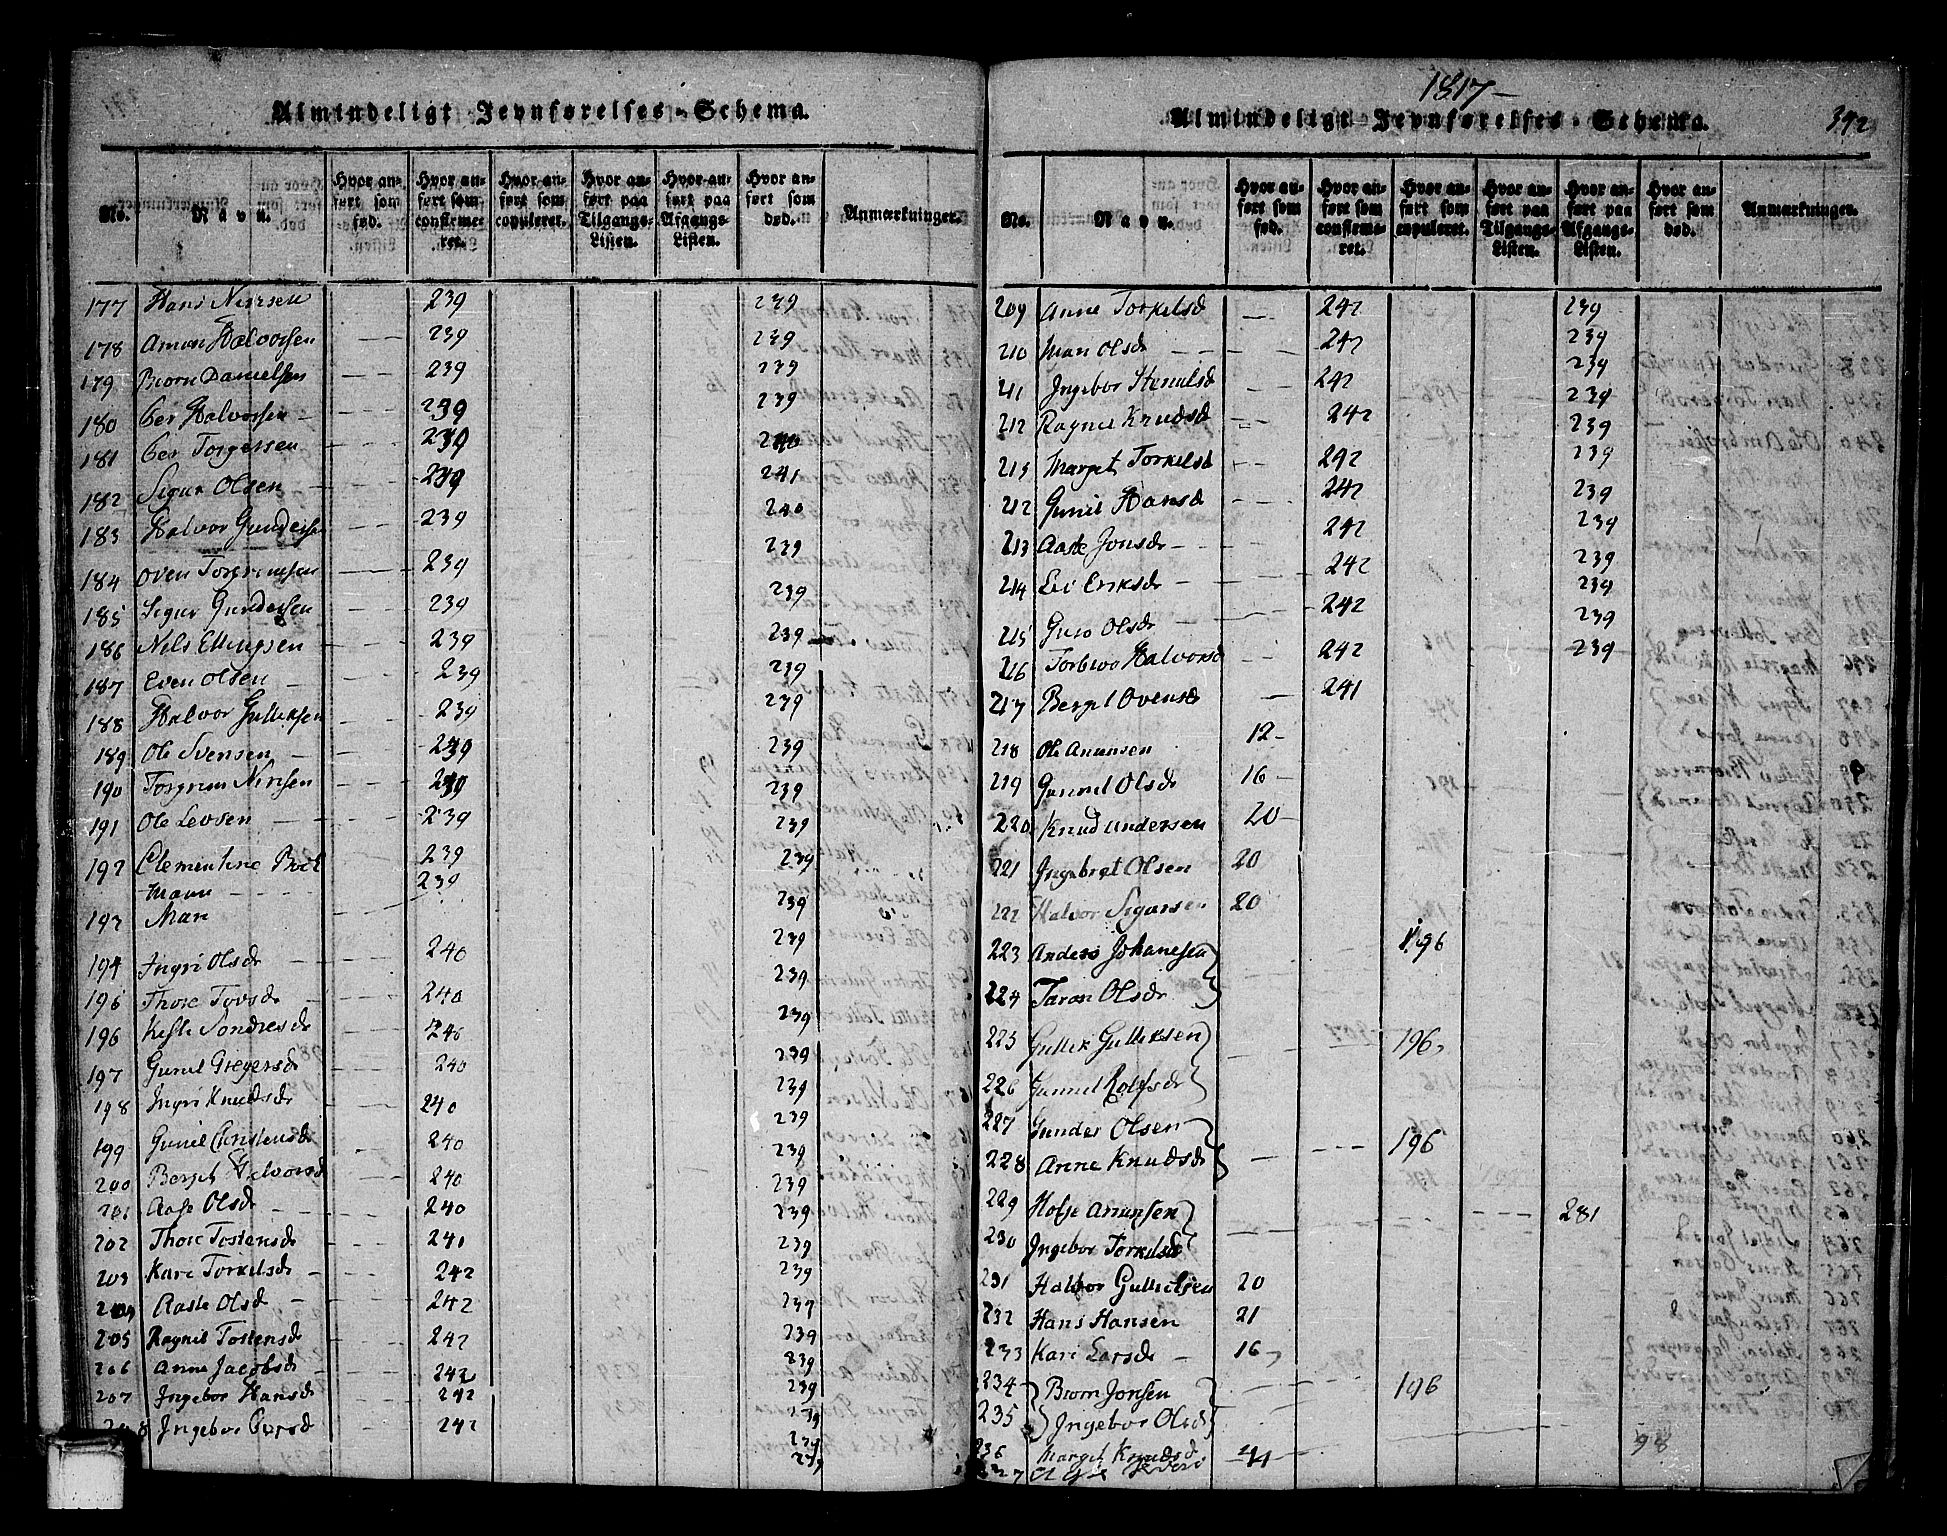 Almindeligt Jevnførelses-Schema.
No. | Navn. | Hvor anført som fød. | Hvor anført som confirmeret. | Hvor anført som copuleret. | Hvor anført paa Tilgangs-Listen. | Hvor anført paa Afgangs-Listen. | Hvor anført som død. | Anmærkninger.
177 Hans Nirisen 239 239
178 Amun Halvorsen 239 239
179 Biørn Danielsen 239 239
180 Per Halvorsen 239 239
181 Per Torgersen 239 240
182 Sigur Olsen 239 241
183 Halvor Gundersen 239 240
184 Oven Torgrimsen 239 239
185 Sigur Gundersen 239 239
186 Nils Ellingsen 239 239
187 Even Olsen 239 239
188 Halvor Gulliksen 239 239
189 Ole Svensen 239 239
190 Torgrim Nirisen 239 239
191 Ole Levsen 239 239
192 Clementine Bock 239 239
Mann 239
193 Mari 239
194 Ingri Olsdr 240 239
196 Thore Tovsdr 240 239
196 Kisti Sondresdr 240 239
197 Gunil Gregersdr 240 239
198 Ingri Knudsdr 240 239
199 Gunil Christensdr 240 239
200 Berget Halvorsdr 240 239
201 Aase Olsdr 240 239
202 Thore Tostensdr 241 239
203 Kari Torkelsdr 242 239
204 Aaste Olsdr 242 239
205 Ragnil Tostensdr 242 239
206 Anne Jacobsdr 242 239
207 Ingebor Hansdr 242 239
208 Ingebor 242 239
239
239
1817-
Almindeligt Jevnførelses-Schema. 392
No. | Navn. | Hvor anført som fød. | Hvor anført som confirmeret. | Hvor anført som copuleret. | Hvor anført paa Tilgangs-Listen. | Hvor anført paa Afgangs-Listen. | Hvor anført som død. | Anmærkninger.
209 Anne Torkelsd 242 239
210 Mari Olsdr 242 239
211 Ingebor 242 239
212 Ragnil Knudsdr 242 239
213 Marget Torkelsd 242 239
212 Gunil Hansdr 242 239
213 Aaste Jonsdr 242 239
214 Lei Eriksdr 242 239
215 Guro Olsdr 242 239
216 Torbior Halvorsd 242 239
217 Berget Ovensdr 241 239
218 Ole Anunsen 12
219 Gunnil Olsdr 16
220 Knud Andersen 20
221 Ingebret Olsen 20
222 Halvor Sigursen 20
223 Anders Johanesen 196
224 Taran Olsdr
225 Gullik Gulliksen 196
226 Gunnil Rolfsdr
227 Gunder Olsen 196
228 Anne Knudsdr
229 Holje Anunsen 281
230 Ingebor Torkelsdr
231 Halvor Gulliksen 20
232 Hans Hansen 21
233 Kari Larsdr 16
234 Biørn Jonsen 196
235 Ingebor Olsdr
236 Marget Knudsdr 98